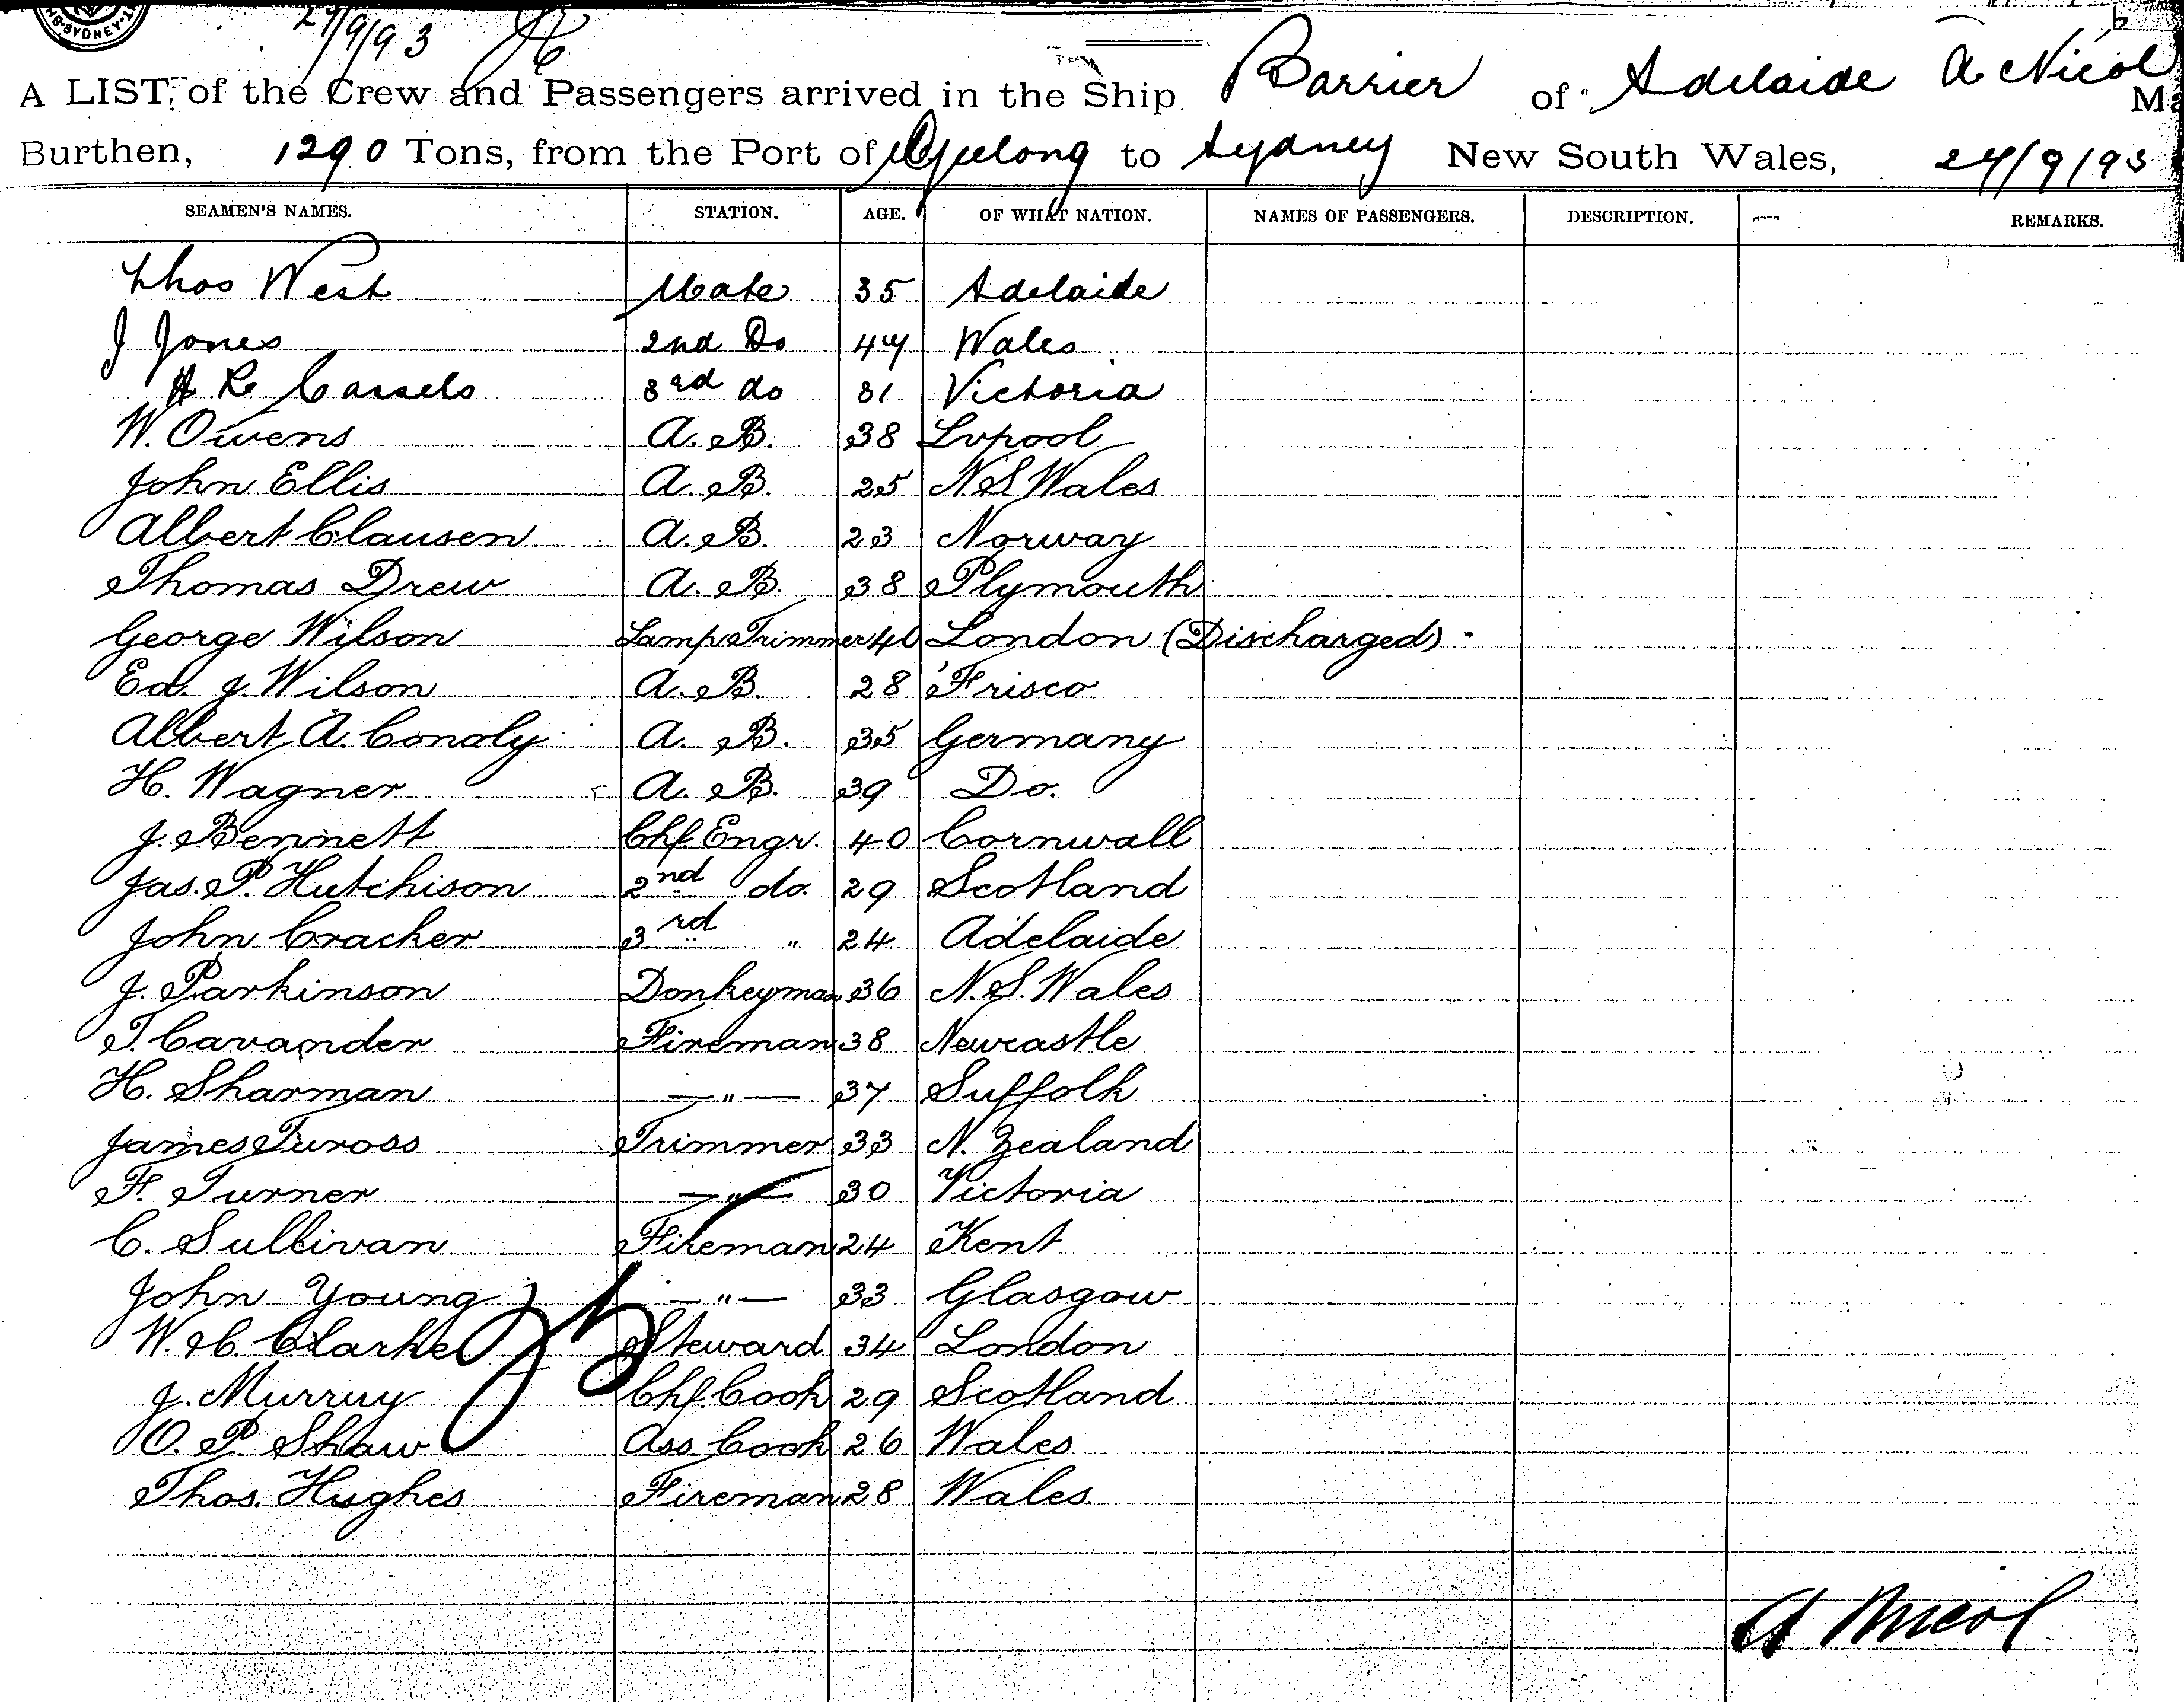 SYDNEY
27/9/93
A LIST, of the Crew and Passengers arrived in the Ship Barrier of Adelaide A Nicol Ma
Burthen, 1290 Tons, from the Port of Geelong to Sydney New South Wales, 27/9/93
SEAMEN'S NAMES. STATION. AGE. OF WHAT NATION. NAMES OF PASSENGERS. DESCRIPTION. REMARKS.
Thos West Mate 35 Adelaide
J Jones 2nd Do 47 Wales
A R Cassels 3rd do 31 Victoria
W. Owens A. B. 38 Lvpool
John Ellis A. B. 25 N. S Wales
Albert Clausen A. B. 23 Norway
Thomas Drew A. B. 38 Plymouth
George Wilson Lamp Trimmer 40 London (Discharged)
Ed. J. Wilson A. B. 28 'Frisco
Albert A. Conoly A. B. 35 Germany
H. Wagner A. B. 39 Do.
J. Bennett Chf Engr. 40 Cornwall
Jas. P. Hutchison 2nd do. 29 Scotland
John Cracker 3rd " 24 Adelaide
J. Parkinson Donkeyman 36 N. S. Wales
T. Cavander Fireman 38 Newcastle
H. Sharman —"— 37 Suffolk
James Tuross Trimmer 33 N. Zealand
F. Turner —"— 30 Victoria
C. Sullivan Fireman 24 Kent
John Young —"— 33 Glasgow
W. H. Clarke Steward 34 London
J. Murruy Chf. Cook 29 Scotland
O. P. Shaw Ass Cook 26 Wales
Thos. Hughes Fireman 28 Wales
25
A Nicol